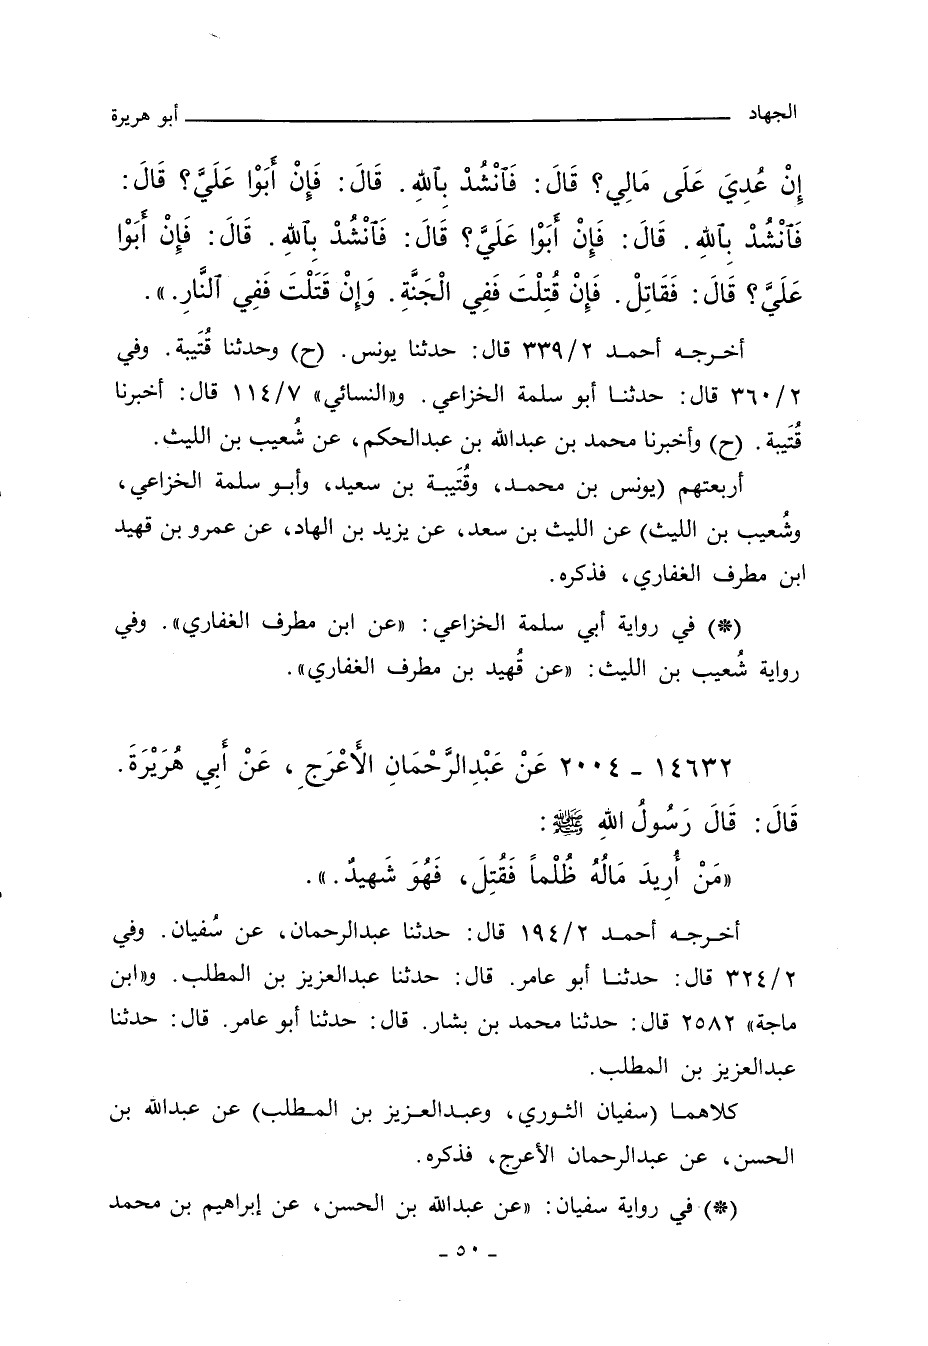 الجهاد ــــــــــــــــــــــــــــــــــــــــ أبو هريرة
إِنْ عُدِيَ عَلَى مَالِي؟ قَالَ: فَٱنْشُدْ بِٱللهِ. قَالَ: فَإِنْ أَبَوْا عَلَيَّ؟ قَالَ:
فَٱنْشُدْ بِٱللهِ. قَالَ: فَإِنْ أَبَوْا عَلَيَّ؟ قَالَ: فَٱنْشُدْ بِٱللهِ. قَالَ: فَإِنْ أَبَوْا
عَلَيَّ؟ قَالَ: فَقَاتِلْ. فَإِنْ قُتِلْتَ فَفِي الْجَنَّةِ. وَإِنْ قَتَلْتَ فَفِي ٱلنَّارِ.».
أخرجه أحمد ٣٣٩/٢ قال: حدثنا يونس. (ح) وحدثنا قُتَيبة. وفي
٣٦٠/٢ قال: حدثنا أبو سلمة الخزاعي. و«النسائي» ١١٤/٧ قال: أخبرنا
قُتَيبة. (ح) وأخبرنا محمد بن عبدالله بن عبدالحكم، عن شُعيب بن الليث.
أربعتهم (يونس بن محمد، وقُتَيبة بن سعيد، وأبو سلمة الخزاعي،
وشُعيب بن الليث) عن الليث بن سعد، عن يزيد بن الهاد، عن عمرو بن قهيد
ابن مطرف الغفاري، فذكره.
(*) في رواية أبي سلمة الخزاعي: «عن ابن مطرف الغفاري». وفي
رواية شُعيب بن الليث: «عن قُهيد بن مطرف الغفاري».
١٤٦٣٢ - ٢٠٠٤ عَنْ عَبْدِالرَّحْمَانِ الأَعْرَجِ، عَنْ أَبِي هُرَيْرَةَ.
قَالَ: قَالَ رَسُولُ اللهِ ﷺ:
«مَنْ أُرِيدَ مَالُهُ ظُلْماً فَقُتِلَ، فَهُوَ شَهِيدٌ.».
أخرجه أحمد ١٩٤/٢ قال: حدثنا عبدالرحمان، عن سُفيان. وفي
٣٢٤/٢ قال: حدثنا أبو عامر. قال: حدثنا عبدالعزيز بن المطلب. و«ابن
ماجة» ٢٥٨٢ قال: حدثنا محمد بن بشار. قال: حدثنا أبو عامر. قال: حدثنا
عبدالعزيز بن المطلب.
كلاهما (سفيان الثوري، وعبدالعزيز بن المطلب) عن عبدالله بن
الحسن، عن عبدالرحمان الأعرج، فذكره.
(*) في رواية سفيان: «عن عبدالله بن الحسن، عن إبراهيم بن محمد
- ٥٠ -